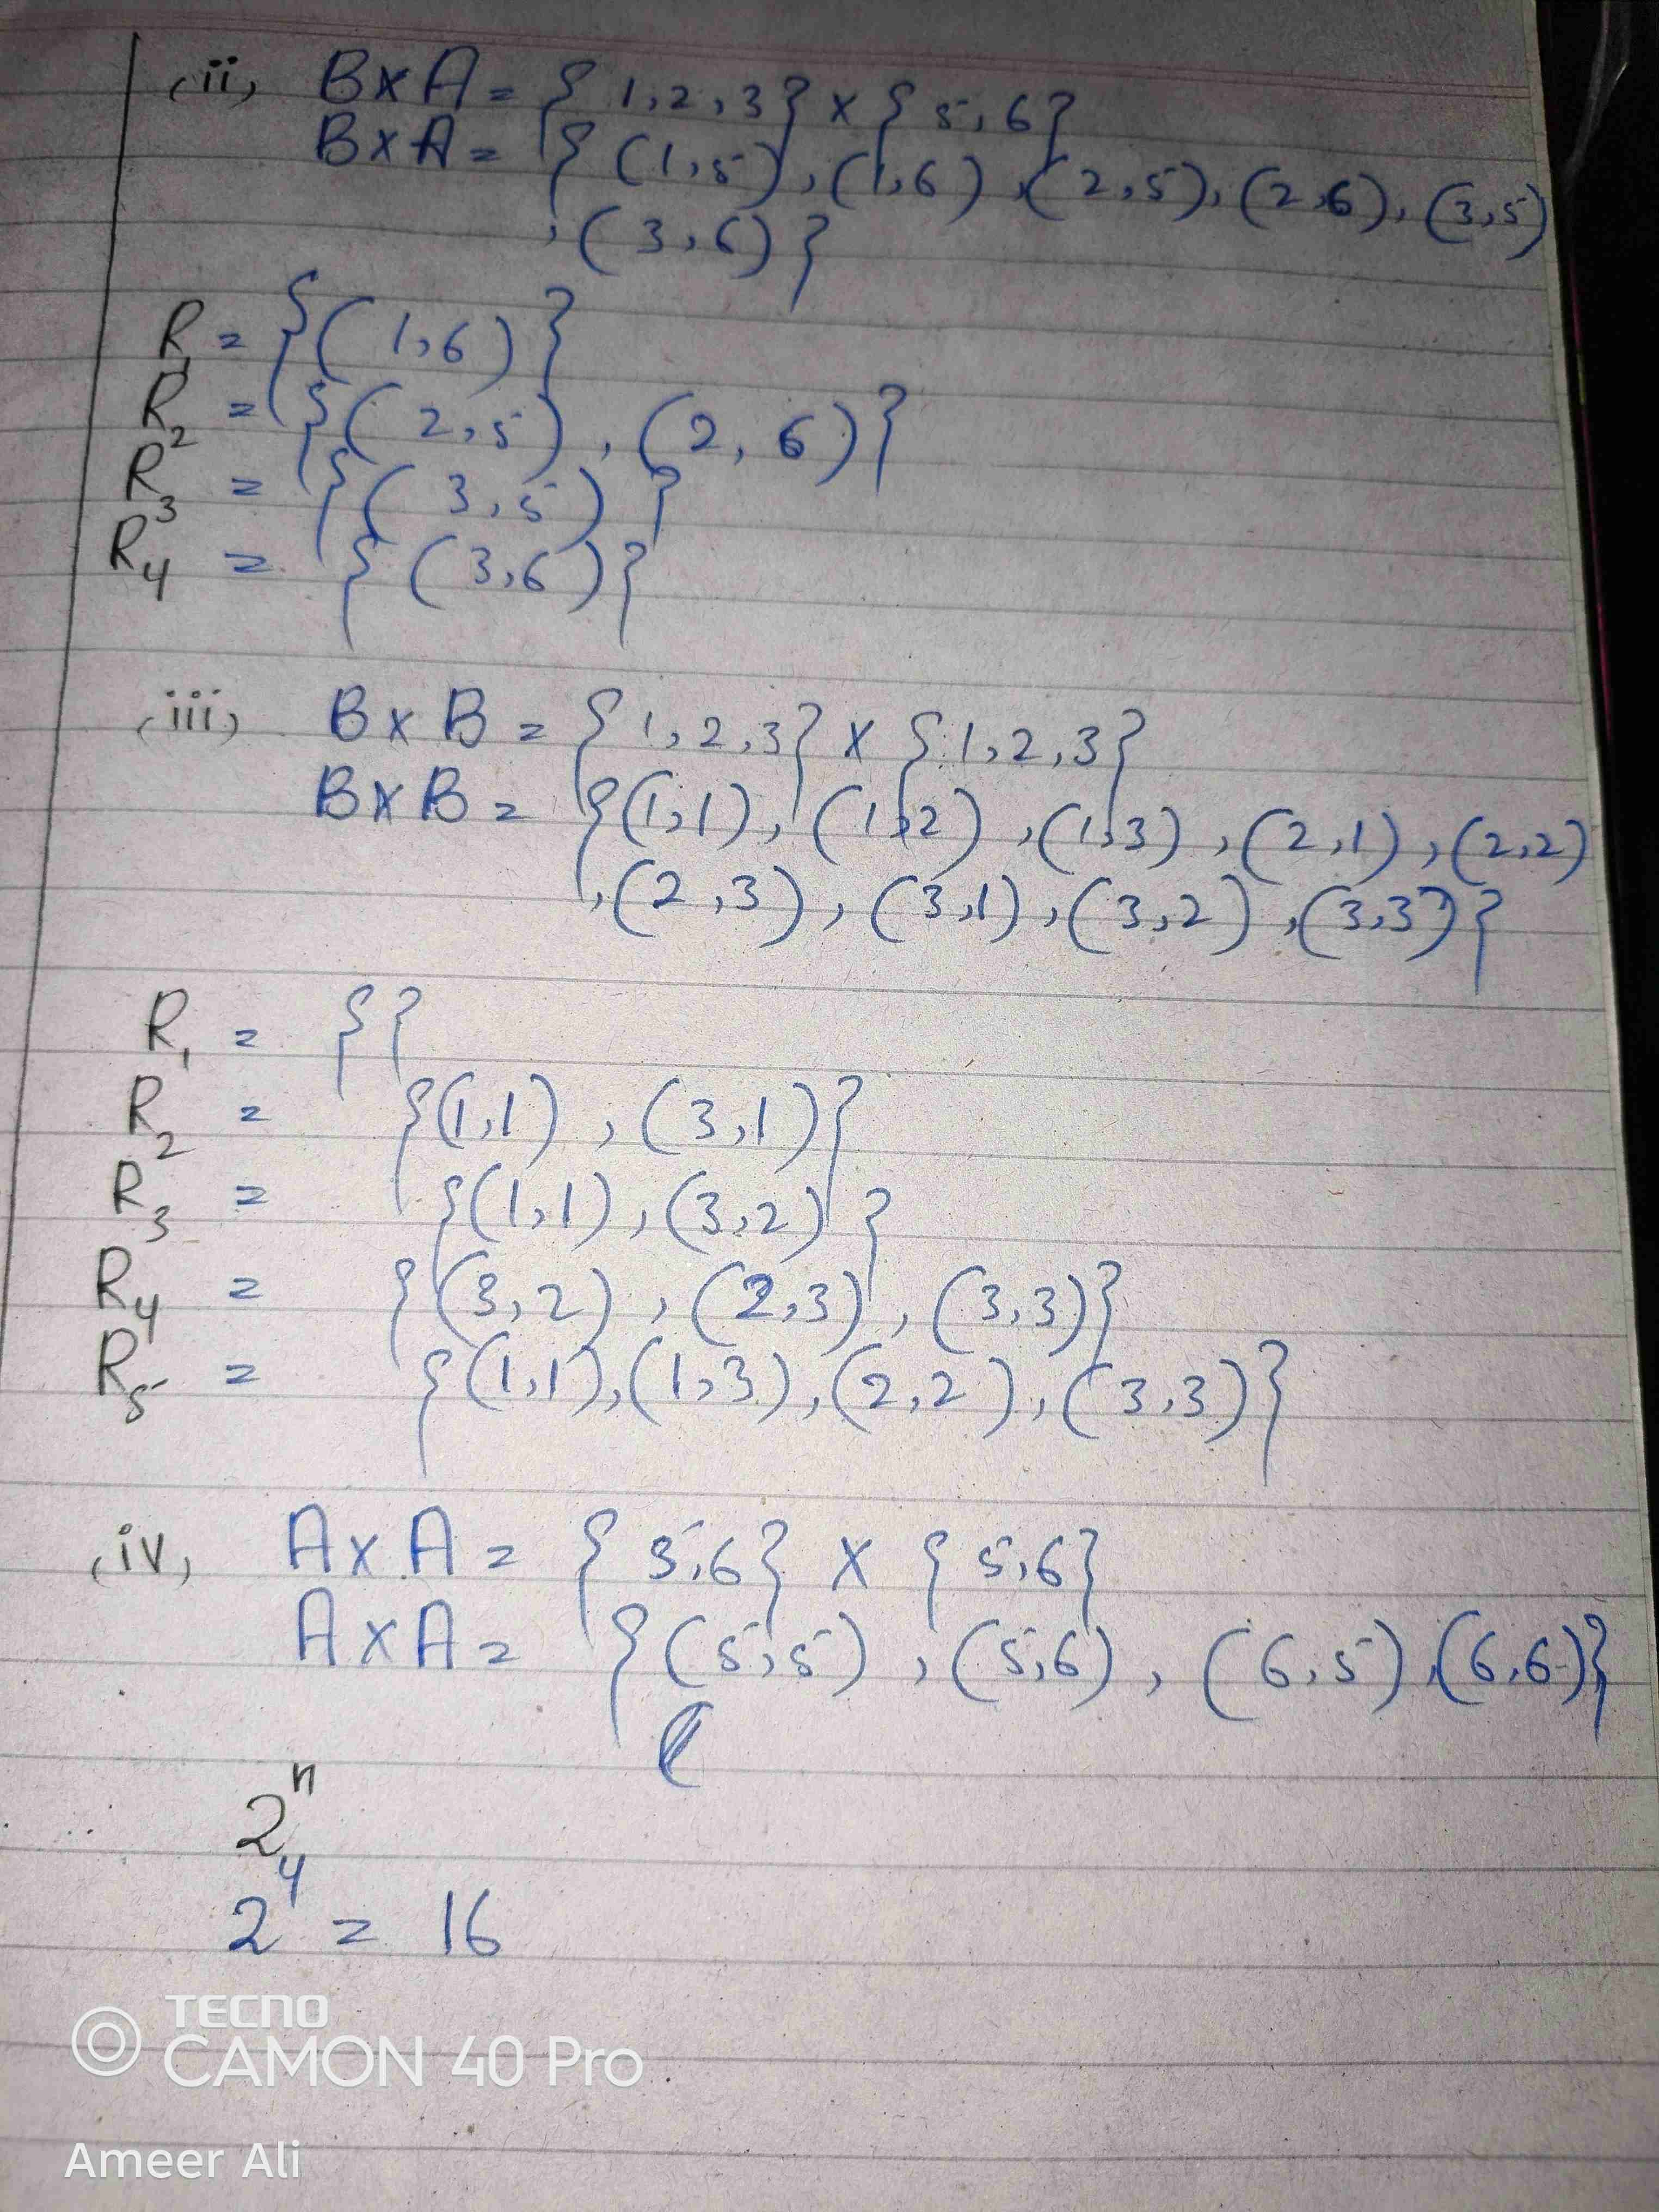 (ii) B×A = { 1,2,3} × { 5,6}
B×A = { (1,5), (1,6), (2,5), (2,6), (3,5)
, (3,6) }
R₁ = { (1,6) }
R₂ = { (2,5), (2,6) }
R₃ = { (3,5) }
R₄ = { (3,6) }
(iii) B×B = { 1,2,3} × { 1,2,3}
B×B = {(1,1), (1,2), (1,3), (2,1), (2,2)
, (2,3), (3,1), (3,2), (3,3) }
R₁ = { }
R₂ = {(1,1), (3,1)}
R₃ = {(1,1), (3,2) }
R₄ = {(3,2), (2,3), (3,3)}
R₅ = {(1,1), (1,3), (2,2), (3,3)}
(iv) A×A = { 5,6} × { 5,6}
A×A = {(5,5), (5,6), (6,5), (6,6)}
2ⁿ
2⁴ = 16
TECNO
CAMON 40 Pro
Ameer Ali